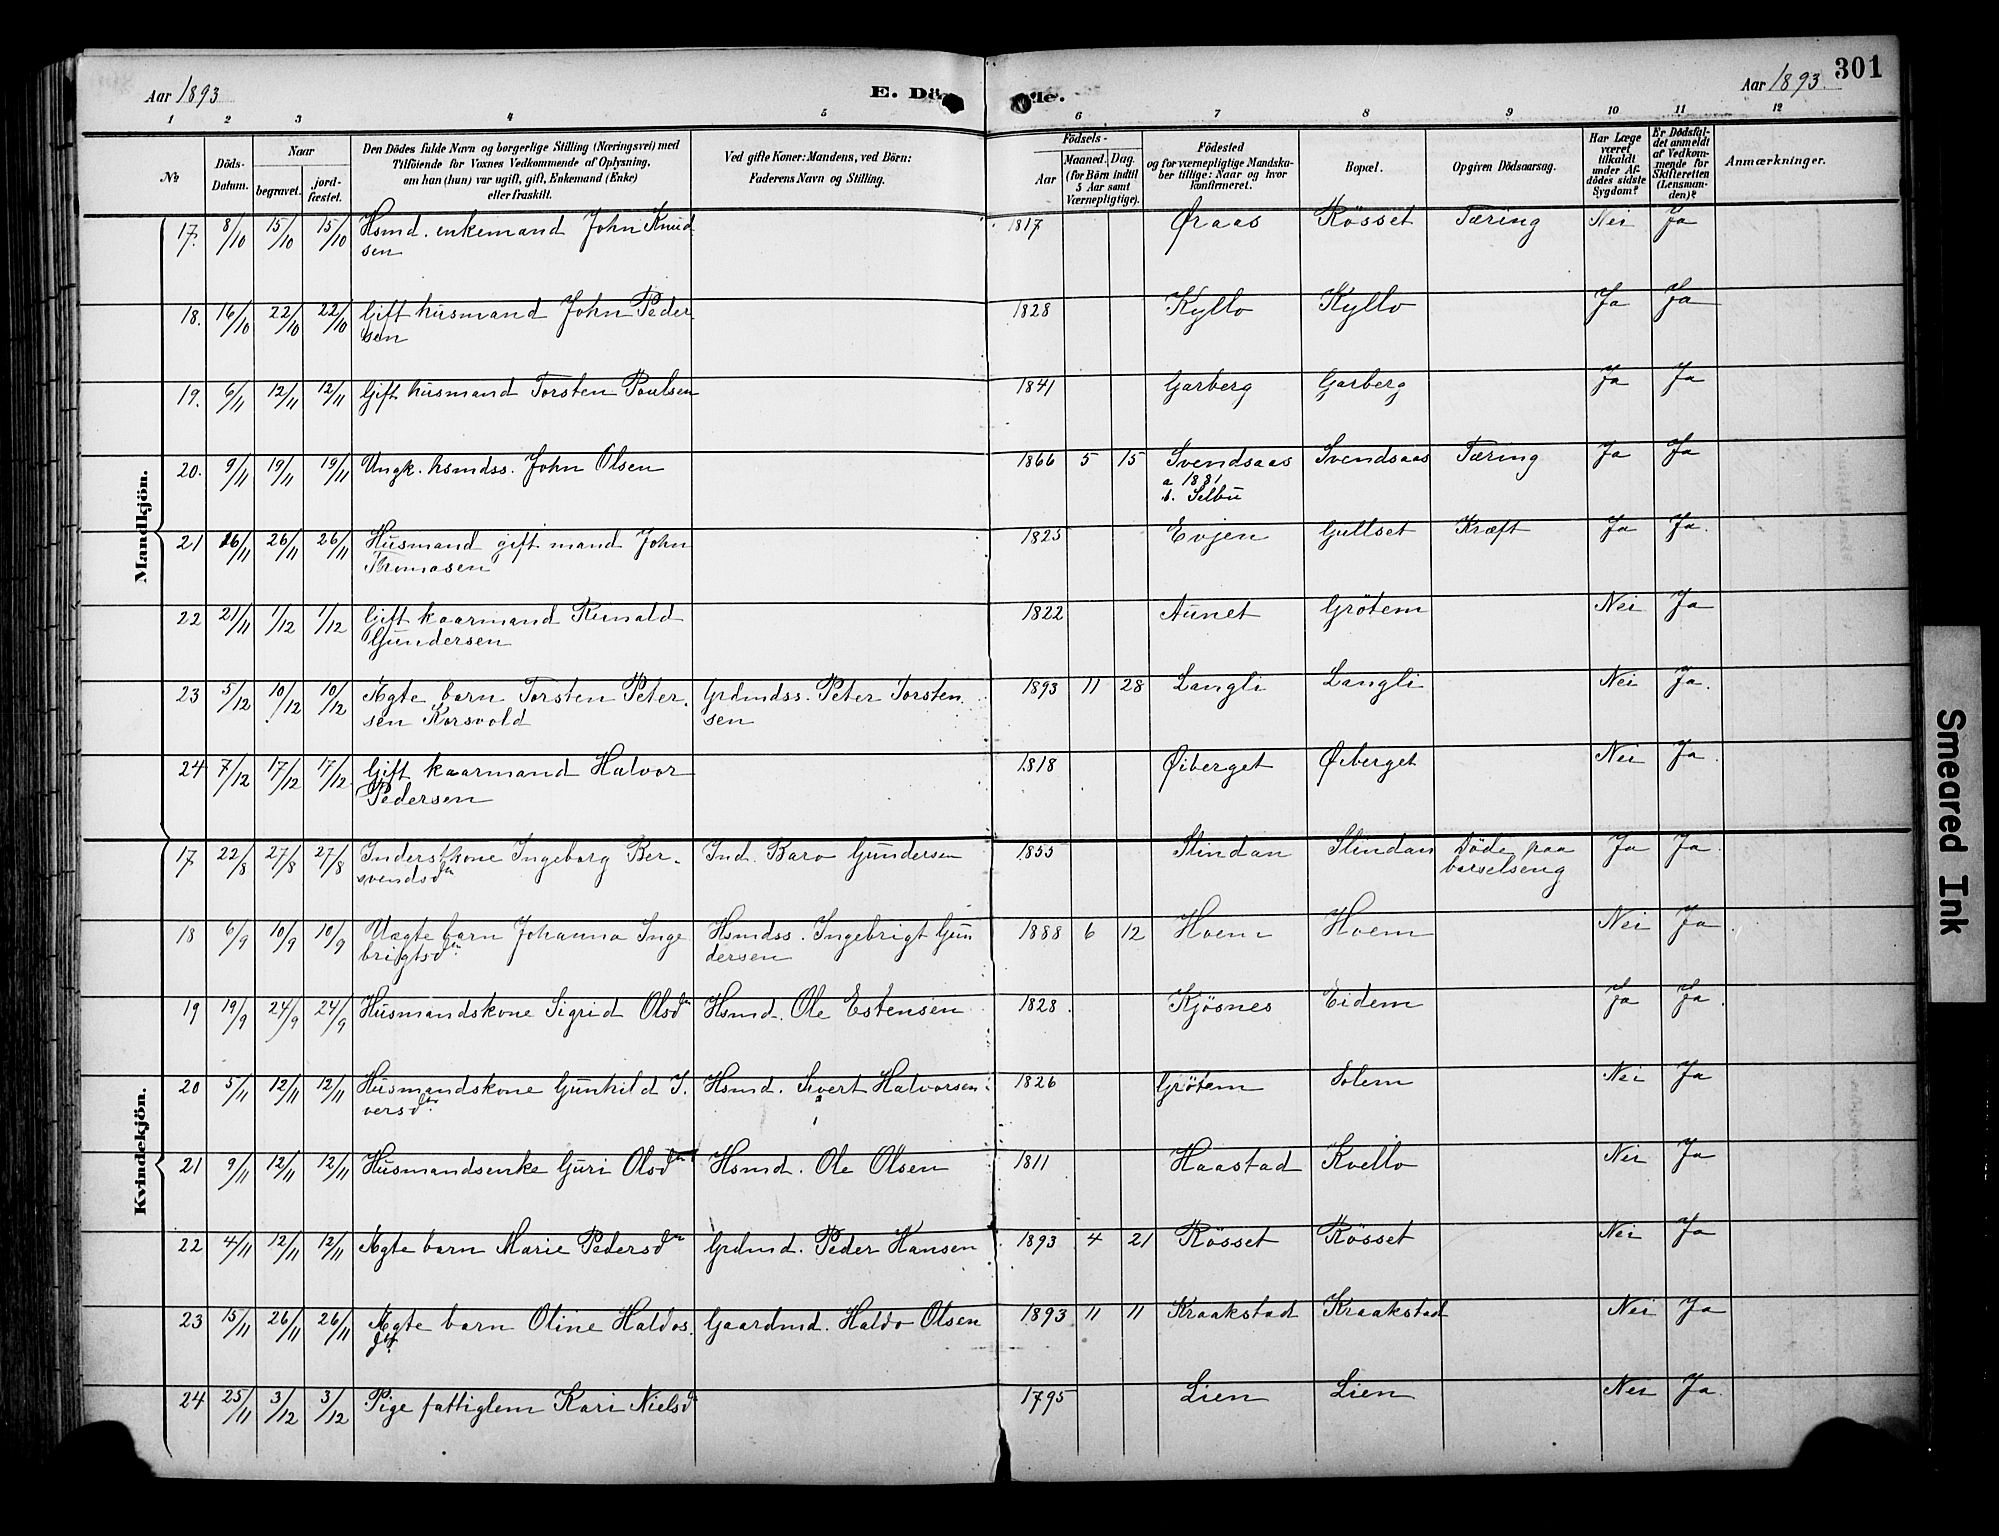 301
Aar 1893 E. Dö de. Aar 1893
1 2 3 4 5 6 7 8 9 10 11 12
№ Döds-Datum. Naar begravet. jord-fæstet. Den Dödes fulde Navn og borgerlige Stilling (Næringsvei) med Tilföiende for Voxnes Vedkommende af Oplysning, om han (hun) var ugift, gift, Enkemand (Enke) eller fraskilt. Ved gifte Koner: Mandens, ved Börn: Faderens Navn og Stilling. Födsels- Aar Maaned. Dag. (for Börn indtil 5 Aar samt Værnepligtige). Födested og for værnepligtige Mandska-ber tillige: Naar og hvor konfirmeret. Bopæl. Opgiven Dödsaarsag. Har Læge været tilkaldt under Af-dödes sidste Sygdom? Er Dödsfal-det anmeldt af Vedkom-mende for Skifteretten (Lensman-den)? Anmærkninger.
Mandkjön.
17. 8/10 15/10 15/10 Hsmd. enkemand John Knud 1817 Øraas Rösset Tæring Nei Ja
sen
18. 16/10 22/10 22/10 Gift husmand John Peder 1828 Kyllo Kyllo Ja Ja
sen
19. 6/11 12/11 12/11 Gift husmand Torsten Poulsen 1841 Garberg Garberg Ja Ja
20. 9/11 19/11 19/11 Ungk. hsmdss. John Olsen 1866 5 15 Svendsaas Svendsaas Tæring Ja Ja
a 1881
i. Selbu
21 16/11 26/11 26/11 Husmand gift mand John 1825 Evjen Gullset Kræft Ja Ja.
Thomasen
22 21/11 1/12 1/12 Gift kaarmand Rumald 1822 Aunet Grötem Nei Ja
Gundersen
23 5/12 10/12 10/12 Ægte barn Torsten Peter. Grdmdss. Peter Torsten. 1893 11 28 Langli Langli Nei Ja.
sen Korsvold sen
24 7/12 17/12 17/12 Gift kaarmand Halvor 1818 Øiberget Øiberget Nei Ja
Pedersen
Kvindekjön.
17 22/8 27/8 27/8 Inderstkone Ingeborg Ber. Ind. Baro Gundersen 1855 Slindan Slindan Döde paa Ja Ja.
svendsdtr barselseng
18 6/9 10/9 10/9 Uægte barn Johanna Inge Hsmdss. Ingebrigt Gun 1888 6 12 Hoem Hoem Nei Ja.
brigtsdtr. dersen
19 19/9 24/9 24/9 Husmandskone Sigrid Olsdtr Hsmd. Ole Estensen 1828. Kjösnes Eidem Ja Ja
20 5/11 12/11 12/11 Husmandskone Gunhild I. Hsmd. Sivert Halvorsen 1826 Grötem Solem Nei Ja
versdtr.
21 9/11 12/11 12/11 Husmandsenke Guri Olsdtr Hsmd. Ole Olsen 1811 Haastad Kvello Nei Ja
22 4/11 12/11 12/11 Ægte barn Marie Pedersdtr Grdmd. Peder Hansen 1893 4 21 Rösset Rösset Nei Ja
23 15/11 26/11 26/11 Ægte barn Oline Haldos. Gaardmd. Haldo Olsen 1893 11 11 Kraakstad Kraakstad Nei Ja
dtr.
24 25/11 3/12 3/12 Pige fattiglem Kari Nielsdtr 1795 Lien Lien Nei Ja.
Smeared Ink